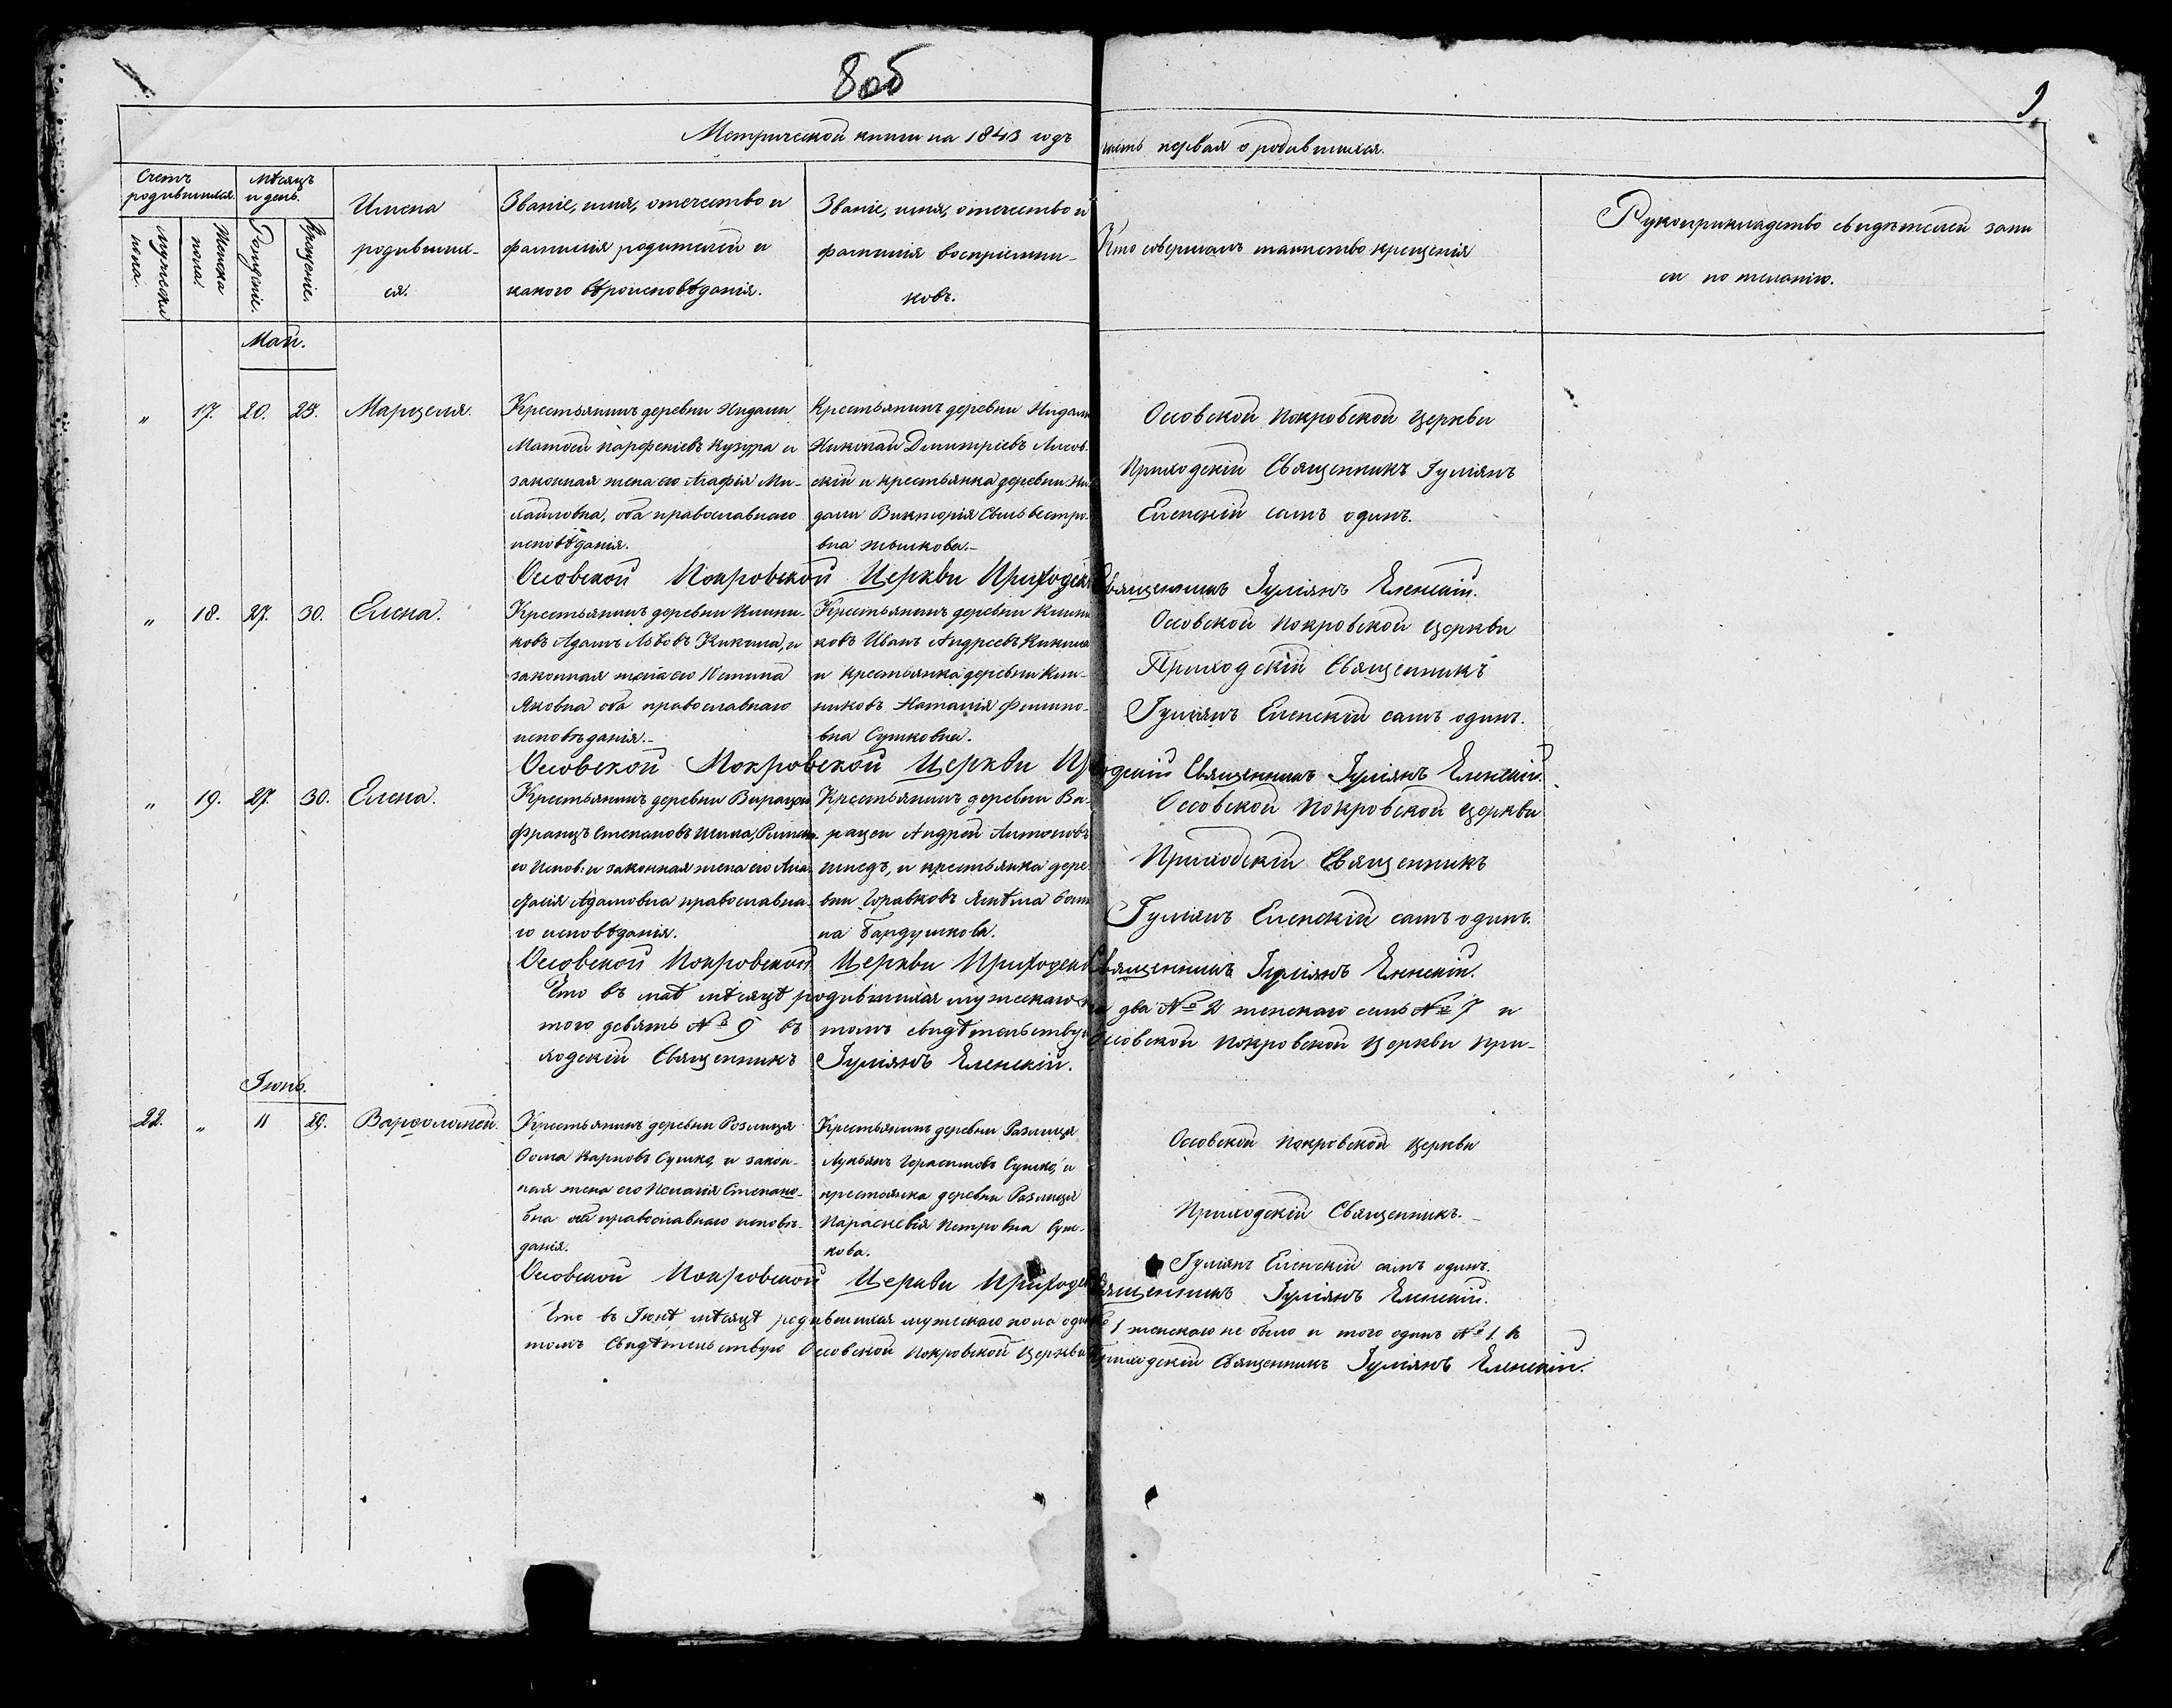 8об
9.
Метрической книги на 1843 годъ часть первая о родившихся.
Счетъ родившихся.
Мужеска пола.
Женска пола.
Мѣсяцъ и день.
Рожденіе.
Крещеніе.
Имена
родивших-
ся.
Званіе, имя, отечество и
фамилія родителей и
какого вѣроисповѣданія.
Званіе, имя, отечество и
фамилія воспріемни-
ковъ.
Кто совершалъ таинство крещенія
Рукоприкладство свидѣтелей запи
си по желанію.
Май.
„ 17. 20. 25. Марцеля.
Крестьянинъ деревни
Матѳей Парфеніевъ Кузура и
законная жена его Агафія Ми-
хайловна, оба православнаго
исповѣданія.
Крестьянинъ деревни
Николай Димитріевъ Лисов-
скій и крестьянка деревни
Викторія Сильвестро-
вна
Оссовской Покровской Церкви
Приходскій Священникъ Іуліянъ
Еленскій самъ одинъ.
Оссовской Покровской Церкви Приходскій Священникъ Іуліянъ Еленскій.
„ 18. 27. 30. Елена.
Крестьянинъ деревни Клини-
ковъ Адамъ Львовъ Кикила, и
законная жена его
Яковна оба православнаго
исповѣданія.-
Крестьянинъ деревни Клини
ковъ Иванъ Андреевъ Кикила
и крестьянка деревни Кли-
никовъ Наталія Филипо-
вна Сушковна.
Оссовской Покровской Церкви
Приходскій Священникъ
Іуліянъ Еленскій самъ одинъ.
Оссовской Покровской Церкви Приходскій Священникъ Іуліянъ Еленскій.
„ 19. 27. 30. Елена.
Крестьянинъ деревни
Францъ Степановъ Римска-
го Испов: и законная жена его Ана-
стасія Адамовна православна-
го исповѣданія.
Крестьянинъ деревни Ви-
рацеи Андрей Антоновъ
и крестьянка дере
вни
на Бардушкова.
Оссовской Покровской Церкви
Приходскій Священникъ
Іуліянъ Еленскій самъ одинъ.
Оссовской Покровской Церкви Приходскій Священникъ Іуліянъ Еленскій.
Что въ маѣ мѣсяцѣ родившихся мужескаго два № 2 женскаго семь № 7 и
того девять № 9 въ томъ свидѣтельствую Оссовской Покровской Церкви При-
ходскій Священникъ Іуліянъ Еленскій.
Іюнь.
22. „ 11 29. Варѳоломей.
Крестьянинъ деревни Розлища
Ѳома Карповъ Сушко, и закон-
ная жена его Пелагія Степано-
вна оба православнаго исповѣ-
данія.
Крестьянинъ деревни Розлища
Лукьянъ Герасимовъ Сушко, и
крестьянка деревни Розлища
Параскевія Петровна Суш-
кова.
Оссовской Покровской Церкви
Приходскій Священникъ.-
Іуліянъ Еленскій самъ одинъ.
Оссовской Покровской Церкви Приходскій Священникъ Іуліянъ Еленскій.
Что въ Іюнѣ мѣсяцѣ родившихся мужескаго пола одинъ № 1 женскаго не было и того одинъ № 1. въ
томъ Свидѣтельствую Оссовской Покровской Церкви Приходскій Священникъ Іуліянъ Еленскій.